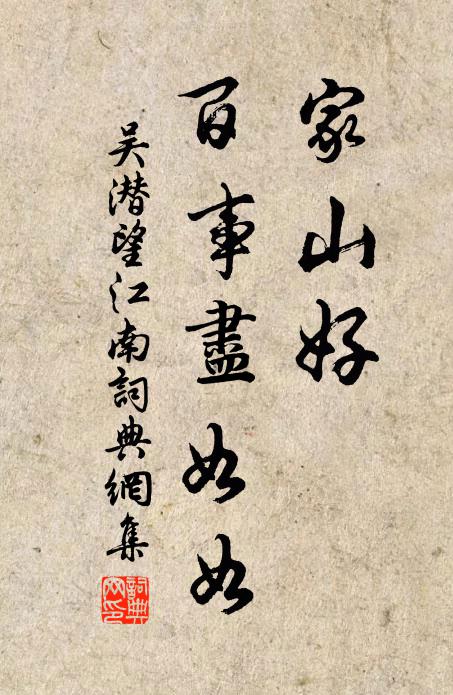 家山好
百事盡如如
吴潜望江南詞典網集
詞典網印